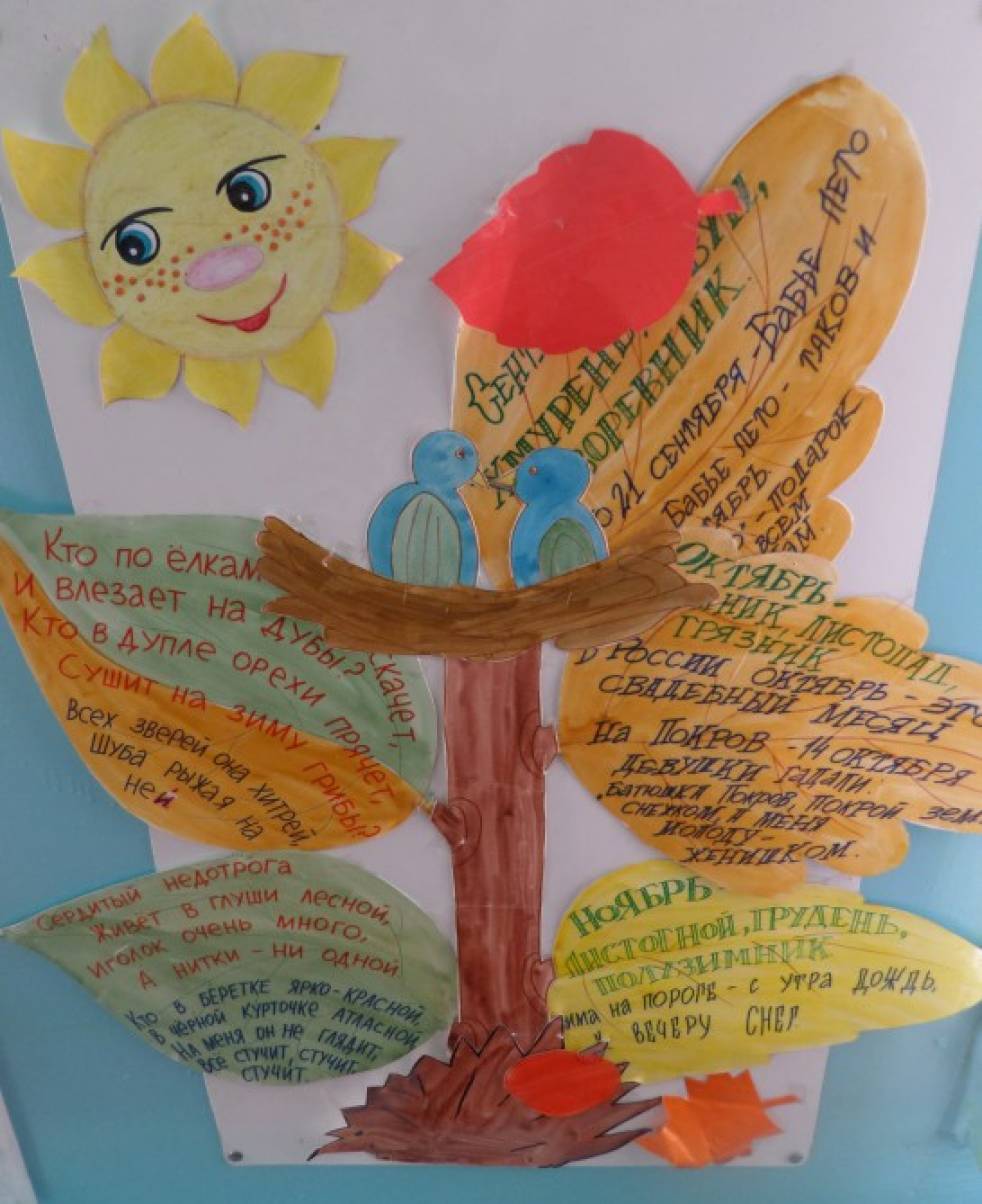 Кто по ёлкам скачет,
И влезает на дубы?
Кто в дупле орехи прячет,
Сушит на зиму грибы?
Всех зверей она хитрей,
Шуба рыжая на
ней
Сердитый недотрога
Живет в глуши лесной,
Иголок очень много,
А нитки - ни одной
Кто в беретке ярко-красной,
В чёрной курточке атласной
На меня он не глядит,
Все стучит, стучит
стучит.
21 сентября - Бабье лето
Бабье лето - таков и
подарок
всем
Октябрь -
листопад,
грязник
В России октябрь - это
свадебный месяц
На Покров - 14 октября
девушки гадали.
Батюшка Покров, покрой
снежком, а меня
молоду -
женишком.
Ноябрь
Листогной, грудень,
полузимник
на пороге - с утра дождь,
к вечеру снег.